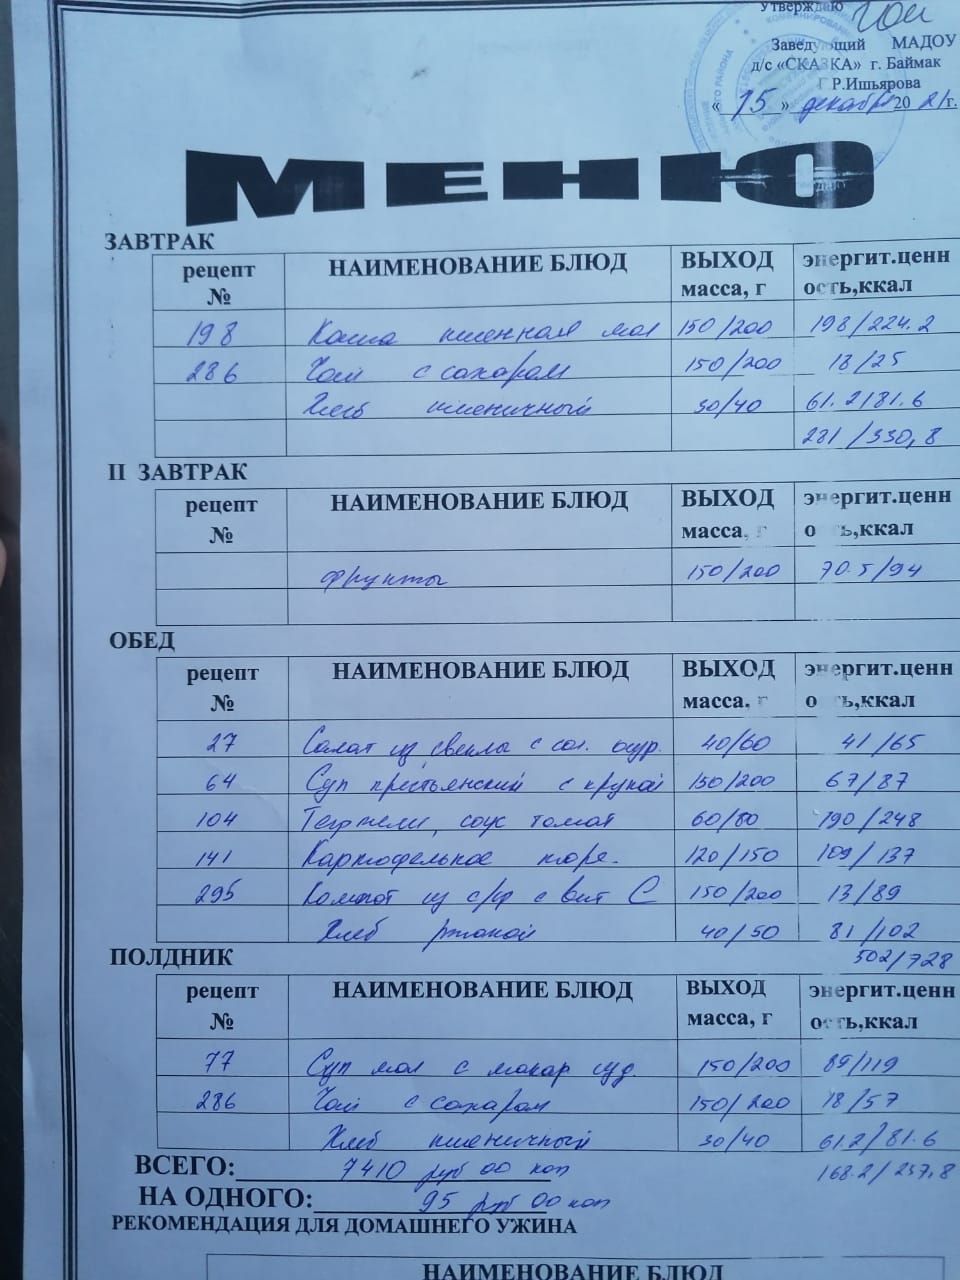 Утверждаю
Заведующий МАДОУ
д/с «СКАЗКА» г. Баймак
Г.Р.Ишьярова
« 15 » декабря 20 21 г.
МЕНЮ
ЗАВТРАК
рецепт № НАИМЕНОВАНИЕ БЛЮД ВЫХОД масса, г энергит.ценн ость,ккал
198 Каша пшенная мол 150/200 198/224.2
286 Чай с сахаром 150/200 18/25
Хлеб пшеничный 30/40 61.2/81.6
281/330,8
II ЗАВТРАК
рецепт № НАИМЕНОВАНИЕ БЛЮД ВЫХОД масса, г энергит.ценн ость,ккал
фрукты 150/200 70.5/94
ОБЕД
рецепт № НАИМЕНОВАНИЕ БЛЮД ВЫХОД масса, г энергит.ценн ость,ккал
27 Салат из свеклы с сол. огур. 40/60 41/65
64 Суп крестьянский с крупой 150/200 67/87
104 Тефтели, соус томат 60/80 190/248
141 Картофельное пюре. 120/150 109/137
295 Компот из с/ф с вит С 150/200 13/89
Хлеб ржаной 40/50 81/102
502/728
ПОЛДНИК
рецепт № НАИМЕНОВАНИЕ БЛЮД ВЫХОД масса, г энергит.ценн ость,ккал
77 Суп мол с макар изд. 150/200 89/119
286 Чай с сахаром 150/200 18/57
Хлеб пшеничный 30/40 61.2/81.6
168.2/257,8
ВСЕГО: 7410 руб 00 коп
НА ОДНОГО: 95 руб 00 коп
РЕКОМЕНДАЦИЯ ДЛЯ ДОМАШНЕГО УЖИНА
НАИМЕНОВАНИЕ БЛЮД